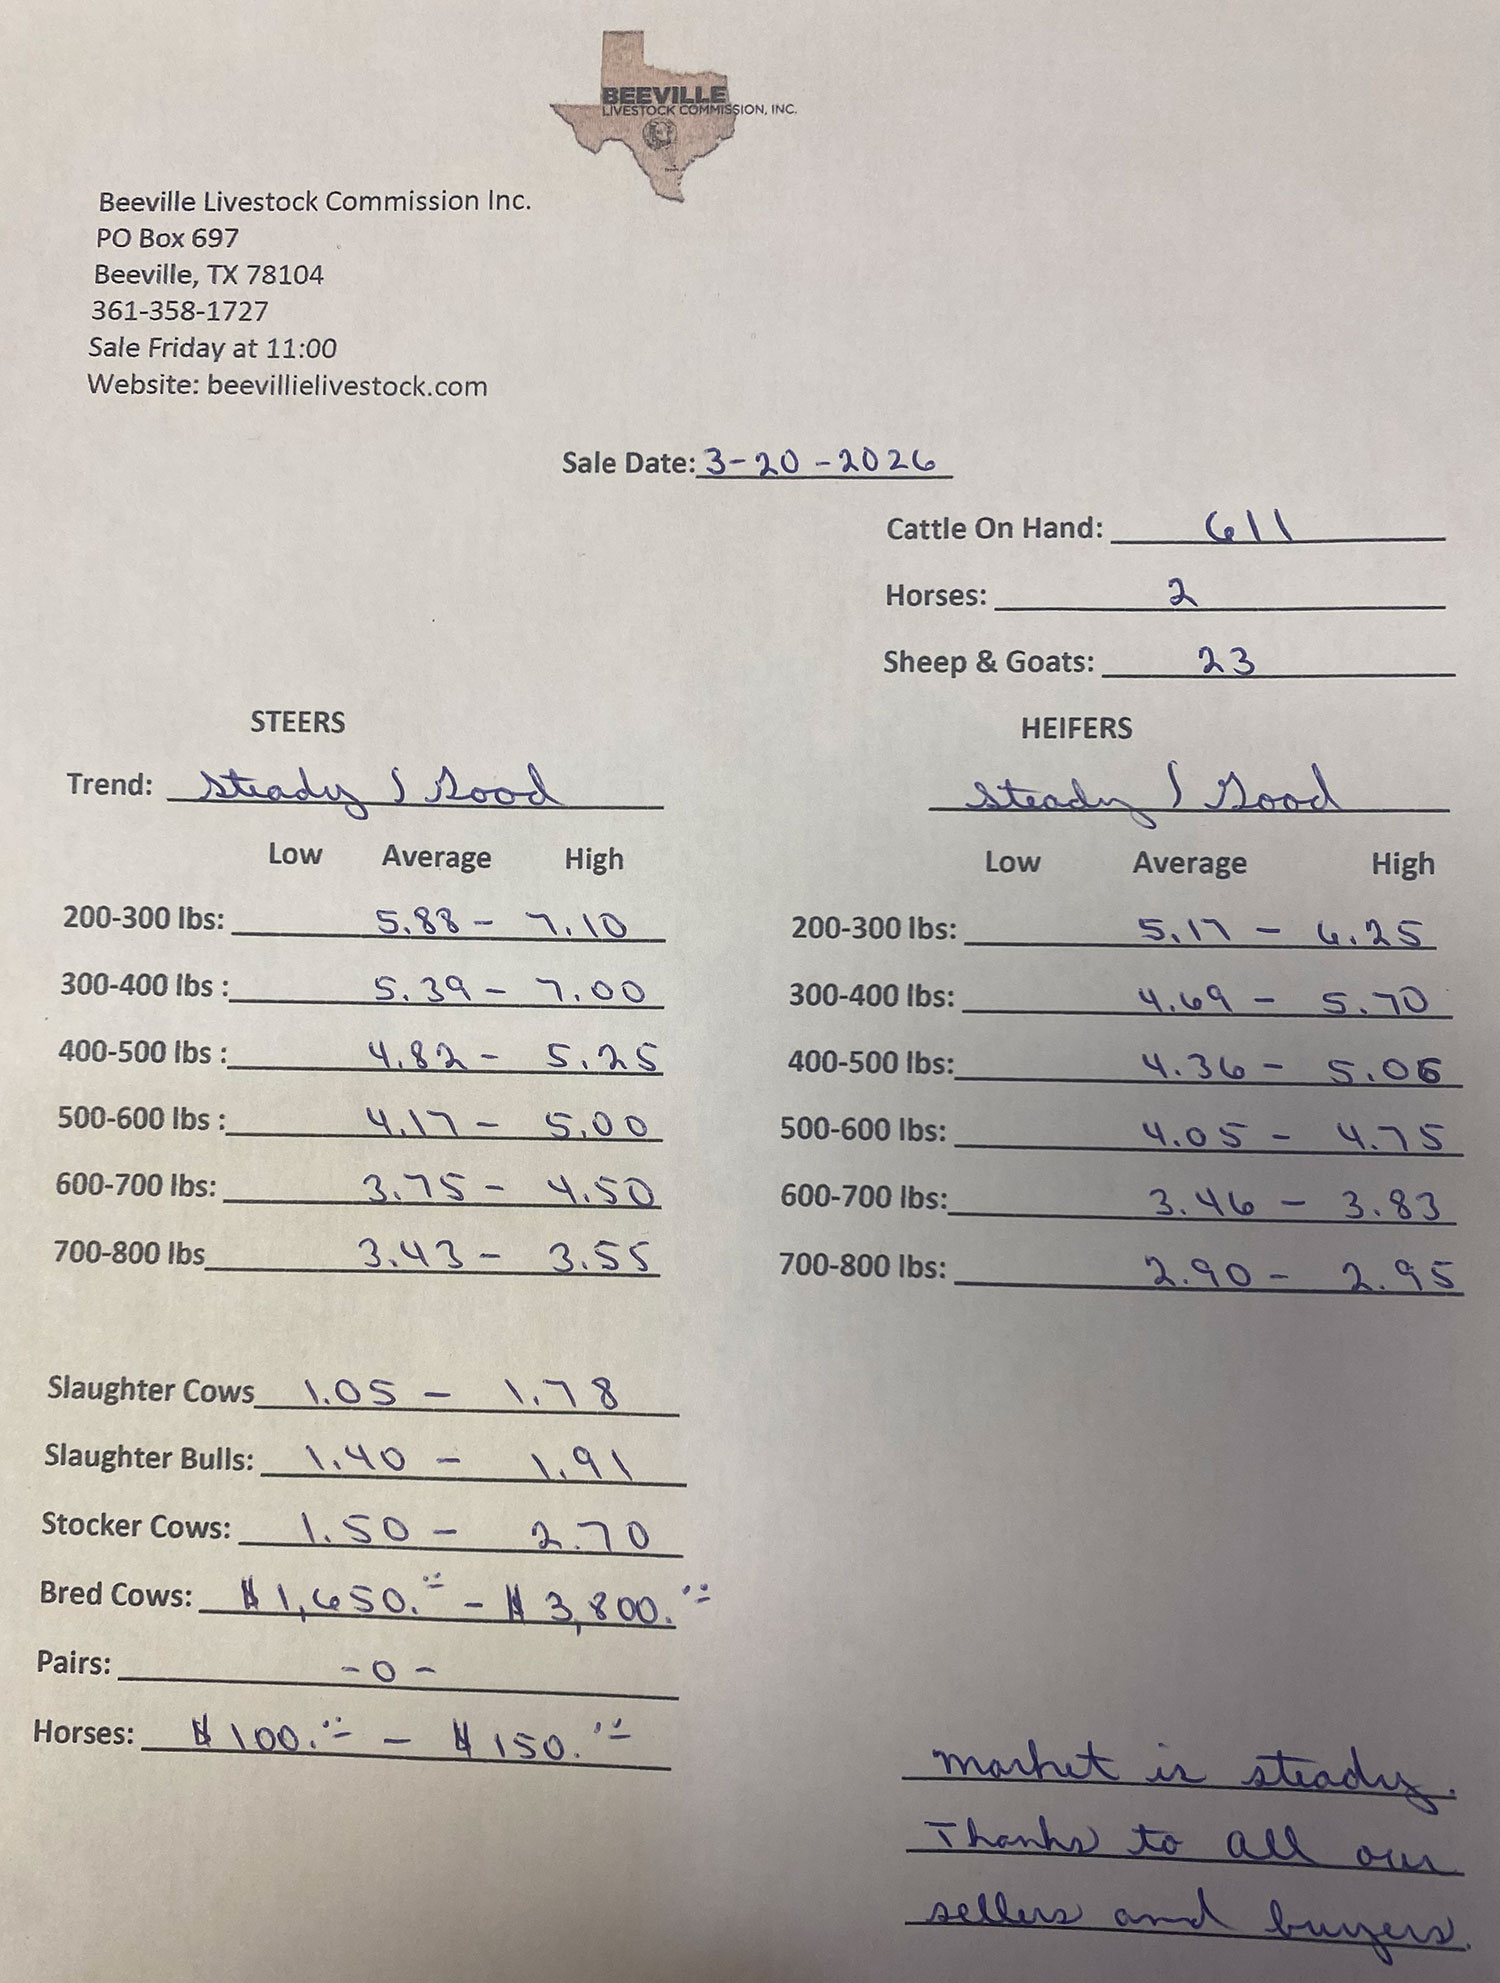 BEEVILLE
LIVESTOCK COMMISSION, INC.
Beeville Livestock Commission Inc.
PO Box 697
Beeville, TX 78104
361-358-1727
Sale Friday at 11:00
Website: beevillielivestock.com
Sale Date: 3-20-2026
Cattle On Hand: 611
Horses: 2
Sheep & Goats: 23
STEERS
Trend: Steady / Good
Low Average High
200-300 lbs: 5.88 - 7.10
300-400 lbs : 5.39 - 7.00
400-500 lbs : 4.82 - 5.25
500-600 lbs : 4.17 - 5.00
600-700 lbs: 3.75 - 4.50
700-800 lbs 3.43 - 3.55
HEIFERS
Steady / Good
Low Average High
200-300 lbs: 5.17 - 6.25
300-400 lbs: 4.69 - 5.70
400-500 lbs: 4.36 - 5.06
500-600 lbs: 4.05 - 4.75
600-700 lbs: 3.46 - 3.83
700-800 lbs: 2.90 - 2.95
Slaughter Cows 1.05 - 1.78
Slaughter Bulls: 1.40 - 1.91
Stocker Cows: 1.50 - 2.70
Bred Cows: $1,650. - $3,800.
Pairs: -0-
Horses: $100. - $150.
market is steady.
Thanks to all our
sellers and buyers.